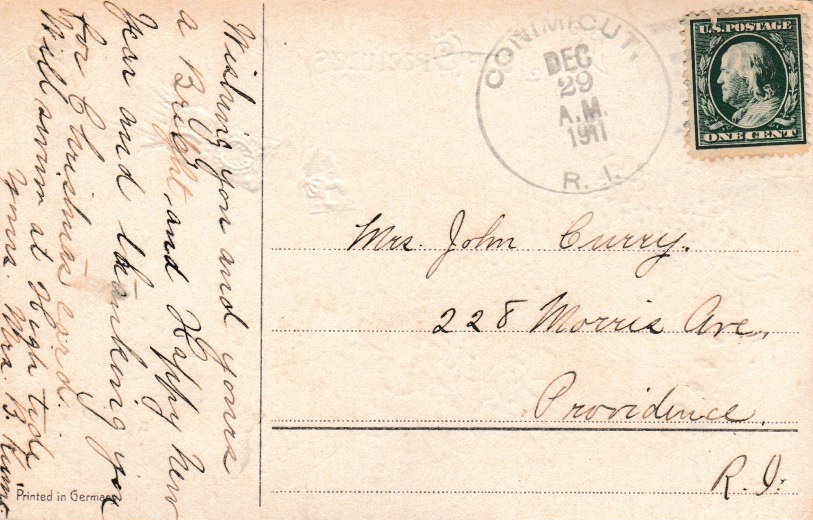 Wishing you and yours
a Bright and Happy New
Year and thanking you
for Christmas card.
Will swum at High tide
Yours Mrs. B.
Printed in Germany
CONIMICUT.
DEC
29
A.M.
1911
R. I.
U.S. POSTAGE
ONE CENT
Mrs. John Curry.
228 Morris Ave,
Providence,
R. I.